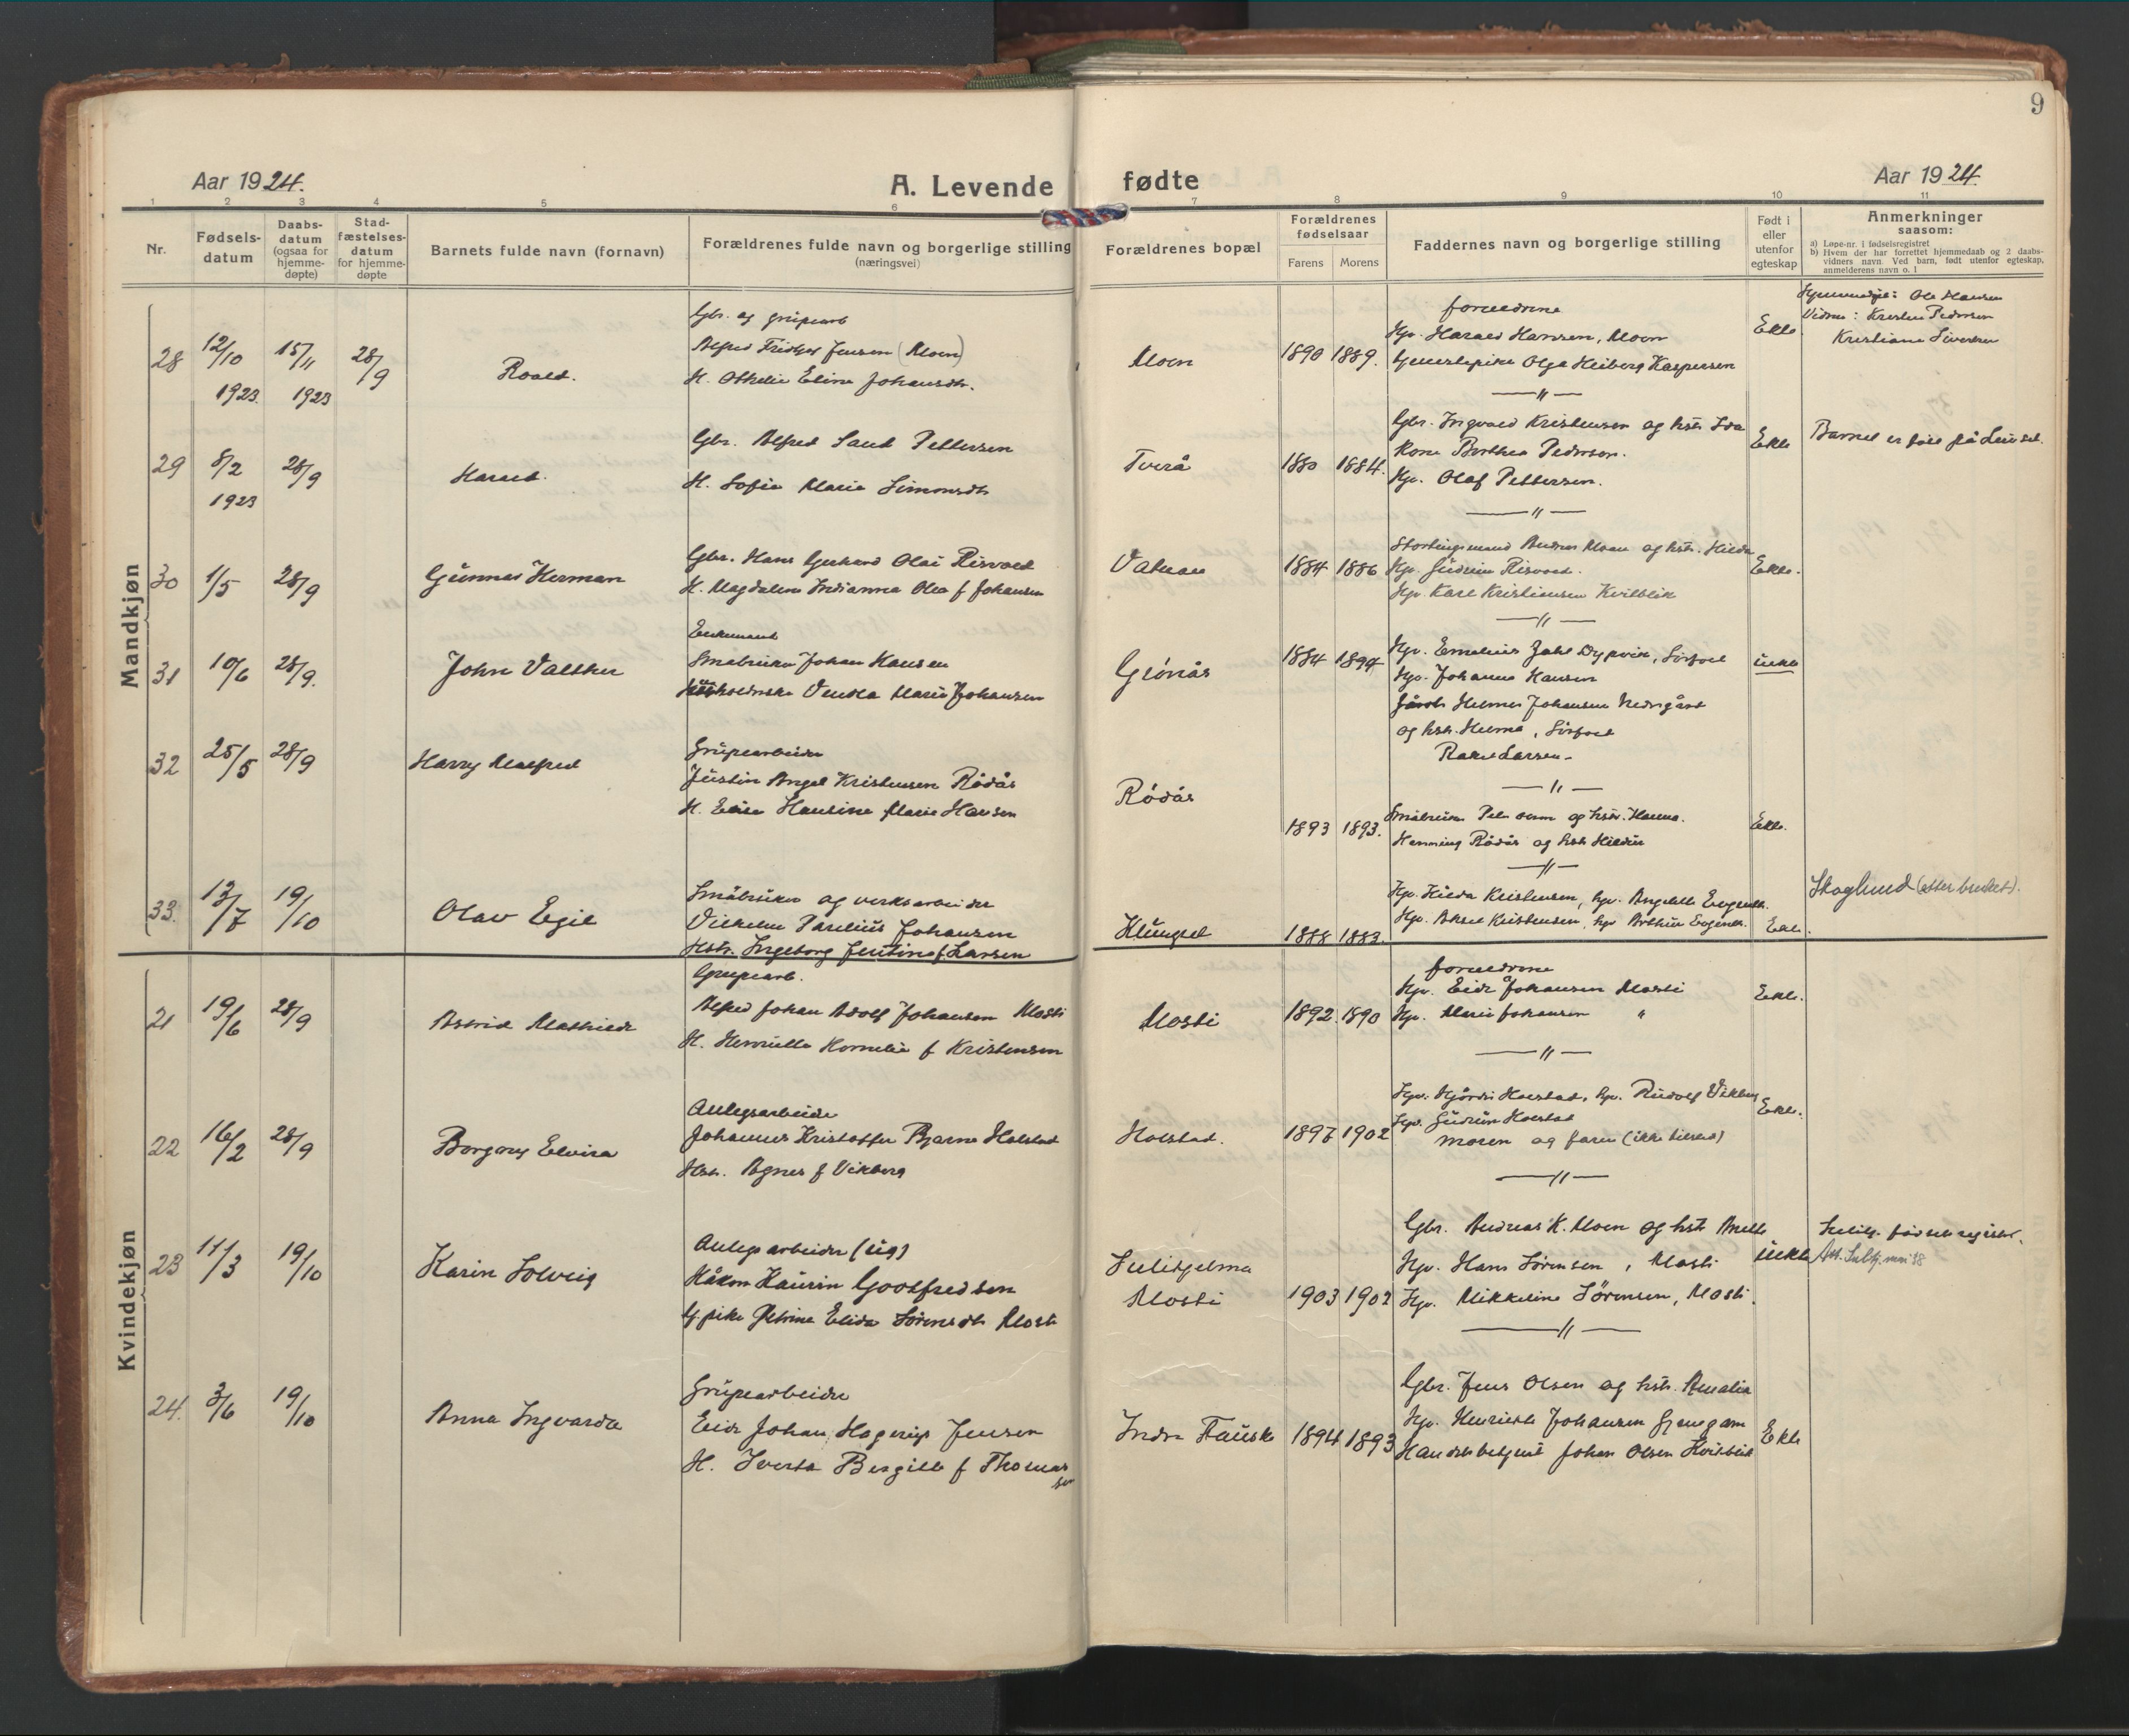 9
Aar 1924.
A. Levende
fødte
Aar 1924
1 2 3 4 5 6 7 8 9 10 11
Nr.
Fødsels-
datum
Daabs-
datum
(ogsaa for
hjemme-
døpte)
Stad-
fæstelses-
datum
for hjemme-
døpte
Barnets fulde navn (fornavn)
Forældrenes fulde navn og borgerlige stilling
(næringsvei)
Forældrenes bopæl
Forældrenes
fødselsaar
Farens Morens
Faddernes navn og borgerlige stilling
Født i
eller
utenfor
egteskap
Anmerkninger
saasom:
a) Løpe-nr. i fødselsregistret
b) Hvem der har forrettet hjemmedaab og 2 daabs-
vidners navn. Ved barn, født utenfor egteskap,
anmelderens navn o. l
Mandkjøn
28 12/10 1923. 15/11 1923 28/9
Roald.
Gbr. og grubearb
Alfred Fridtjof Jensen (Moen)
H. Othelie Eline Johansdtr.
Moen
1890 1889.
forældrene
Hr. Harald Hansen, Moen
Olga Heiberg Kaspersen
Ekte.
Ole Hansen
Vidner: Kristen Pedersen
Kristiane Sivertsen
29 8/2 1923 28/9
Harald.
Gbr. Alfred Sand Pettersen
H. Sofie Marie Simonsdtr
Tverå
1880 1884.
Gbr. Ingvald Kristensen og hstr. Ida
Kone Berthea Pedersen.
Olaf Pettersen.
Ekte
Barnet er født på
30 1/5 28/9
Gunnar Herman
Gbr. Hans Gerhard Olai Risvold
H. Magdalena Indianna Olea f Johansen
Valnes
1884 1886
Stortingsmand Andreas Moan og hstr. Hilda
Gudrun Risvold.
Karl Kristiansen Kvitblik
Ekte.
31 10/6 28/9.
John Valther
Enkemand
Småbruker Johan Hansen
Vendla Marie Johansen
Grönås
1884 1894
Emelius Zahl Dypvik, Sörfold
Johanna Hansen
Gårdb. Helmer Johansen Nedrgård
og hstr. Helma, Sörfold
Rakel Larsen.
uekte
32 25/5 28/9
Harry Malfred
Grubearbeider
Justin Angel Kristensen Rödås
H. Elise Hansine Marie Hansen
Rödås
1893 1893.
Småbruker og hstr. Hanna.
Henning Rödås og hstr Hildur
Ekte.
33. 13/7 19/10
Olav Egil
Småbruker og verksarbeider
Vilhelm Parelius Johansen
Hstr. Ingeborg Jentine f Larsen
Klungset
1888 1883.
Hilda Kristensen,
Aksel Kristensen, Arthur
Ekte.
Skoglund (etter bruket).
Kvindekjøn
21 19/6 28/9
Astrid Mathilde
Grubearb.
Alfred Johan Adolf Johansen Mosti
H. Henriette Kornelie f Kristensen
Mosti
1892. 1890
forældrene
Johansen Mosti
Marie Johansen "
Ekte.
22 16/2 28/9
Borgny Elvira
Anlegsarbeider
Johannes Kristoffer Bjarne Holstad
Hstr. Agnes f Vikberg
Holstad.
1897 1902
Holstad, Rudolf Vikberg
Gudrun Holstad
Moren og faren (ikke tilsted)
Ekte.
23 11/3 19/10
Karin Solveig
Anlegsarbeider (ug)
Håkon Kaurin Godtfredsen
Petrine Elida Sörensdtr Mosti
Sulitjelma
Mosti
1903 1902
Gbr. Andreas K. Moen og hstr Anette
Hans Sörensen, Mosti
Mikkeline Sörensen, Mosti.
uekte
Sulitj. födselsregister.
24. 3/6 19/10
Anna Ingvarda
Grubearbeider
Johan Hagerup Jensen
H. Iverta Bergitte f Thomassen
Indre Fauske
1894 1893
Gbr. Jens Olsen og hstr. Amalia
Johansen
Handelsbetjent Johan Olsen Kvitblik
Ekte